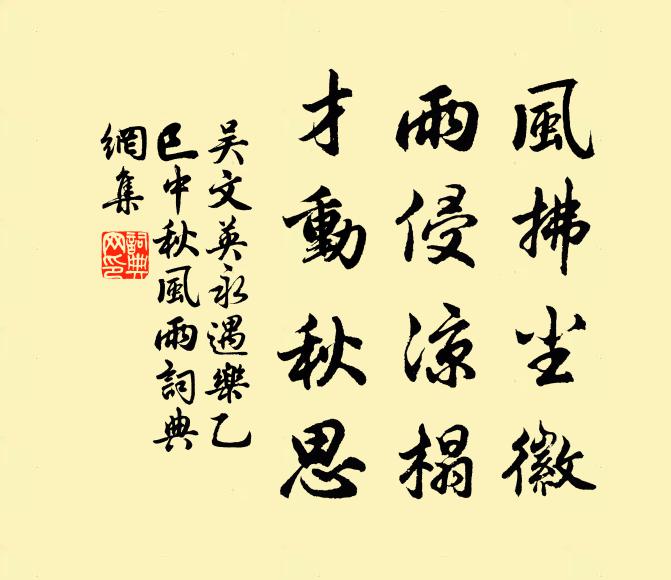 風拂尘徽
雨侵凉榻
才動秋思
吴文英永遇樂乙
巳中秋風雨詞典
網集
詞典
网印